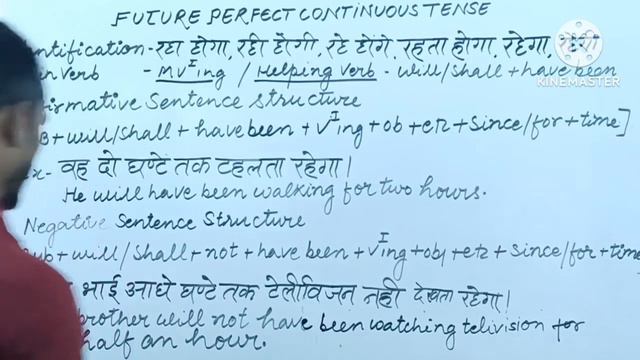 FUTURE PERFECT CONTINUOUS TENSE
entification - रहा होगा, रही होगी, रहे होंगे, रहता होगा, रहेगा, रहेगी
n verb - MVᴵing / Helping verb - will/shall + have been
KINEMASTER
irmative Sentence structure
B + will/shall + have been + Vᴵing + ob + etc + since/for + time]
x - वह दो घण्टे तक टहलता रहेगा।
He will have been walking for two hours.
Negative Sentence Structure
ub + will/shall + not + have been + Vᴵing + obj + etc + since/for + time
भाई आधे घण्टे तक टेलीविजन नहीं देखता रहेगा।
brother will not have been watching telivision for
half an hour.